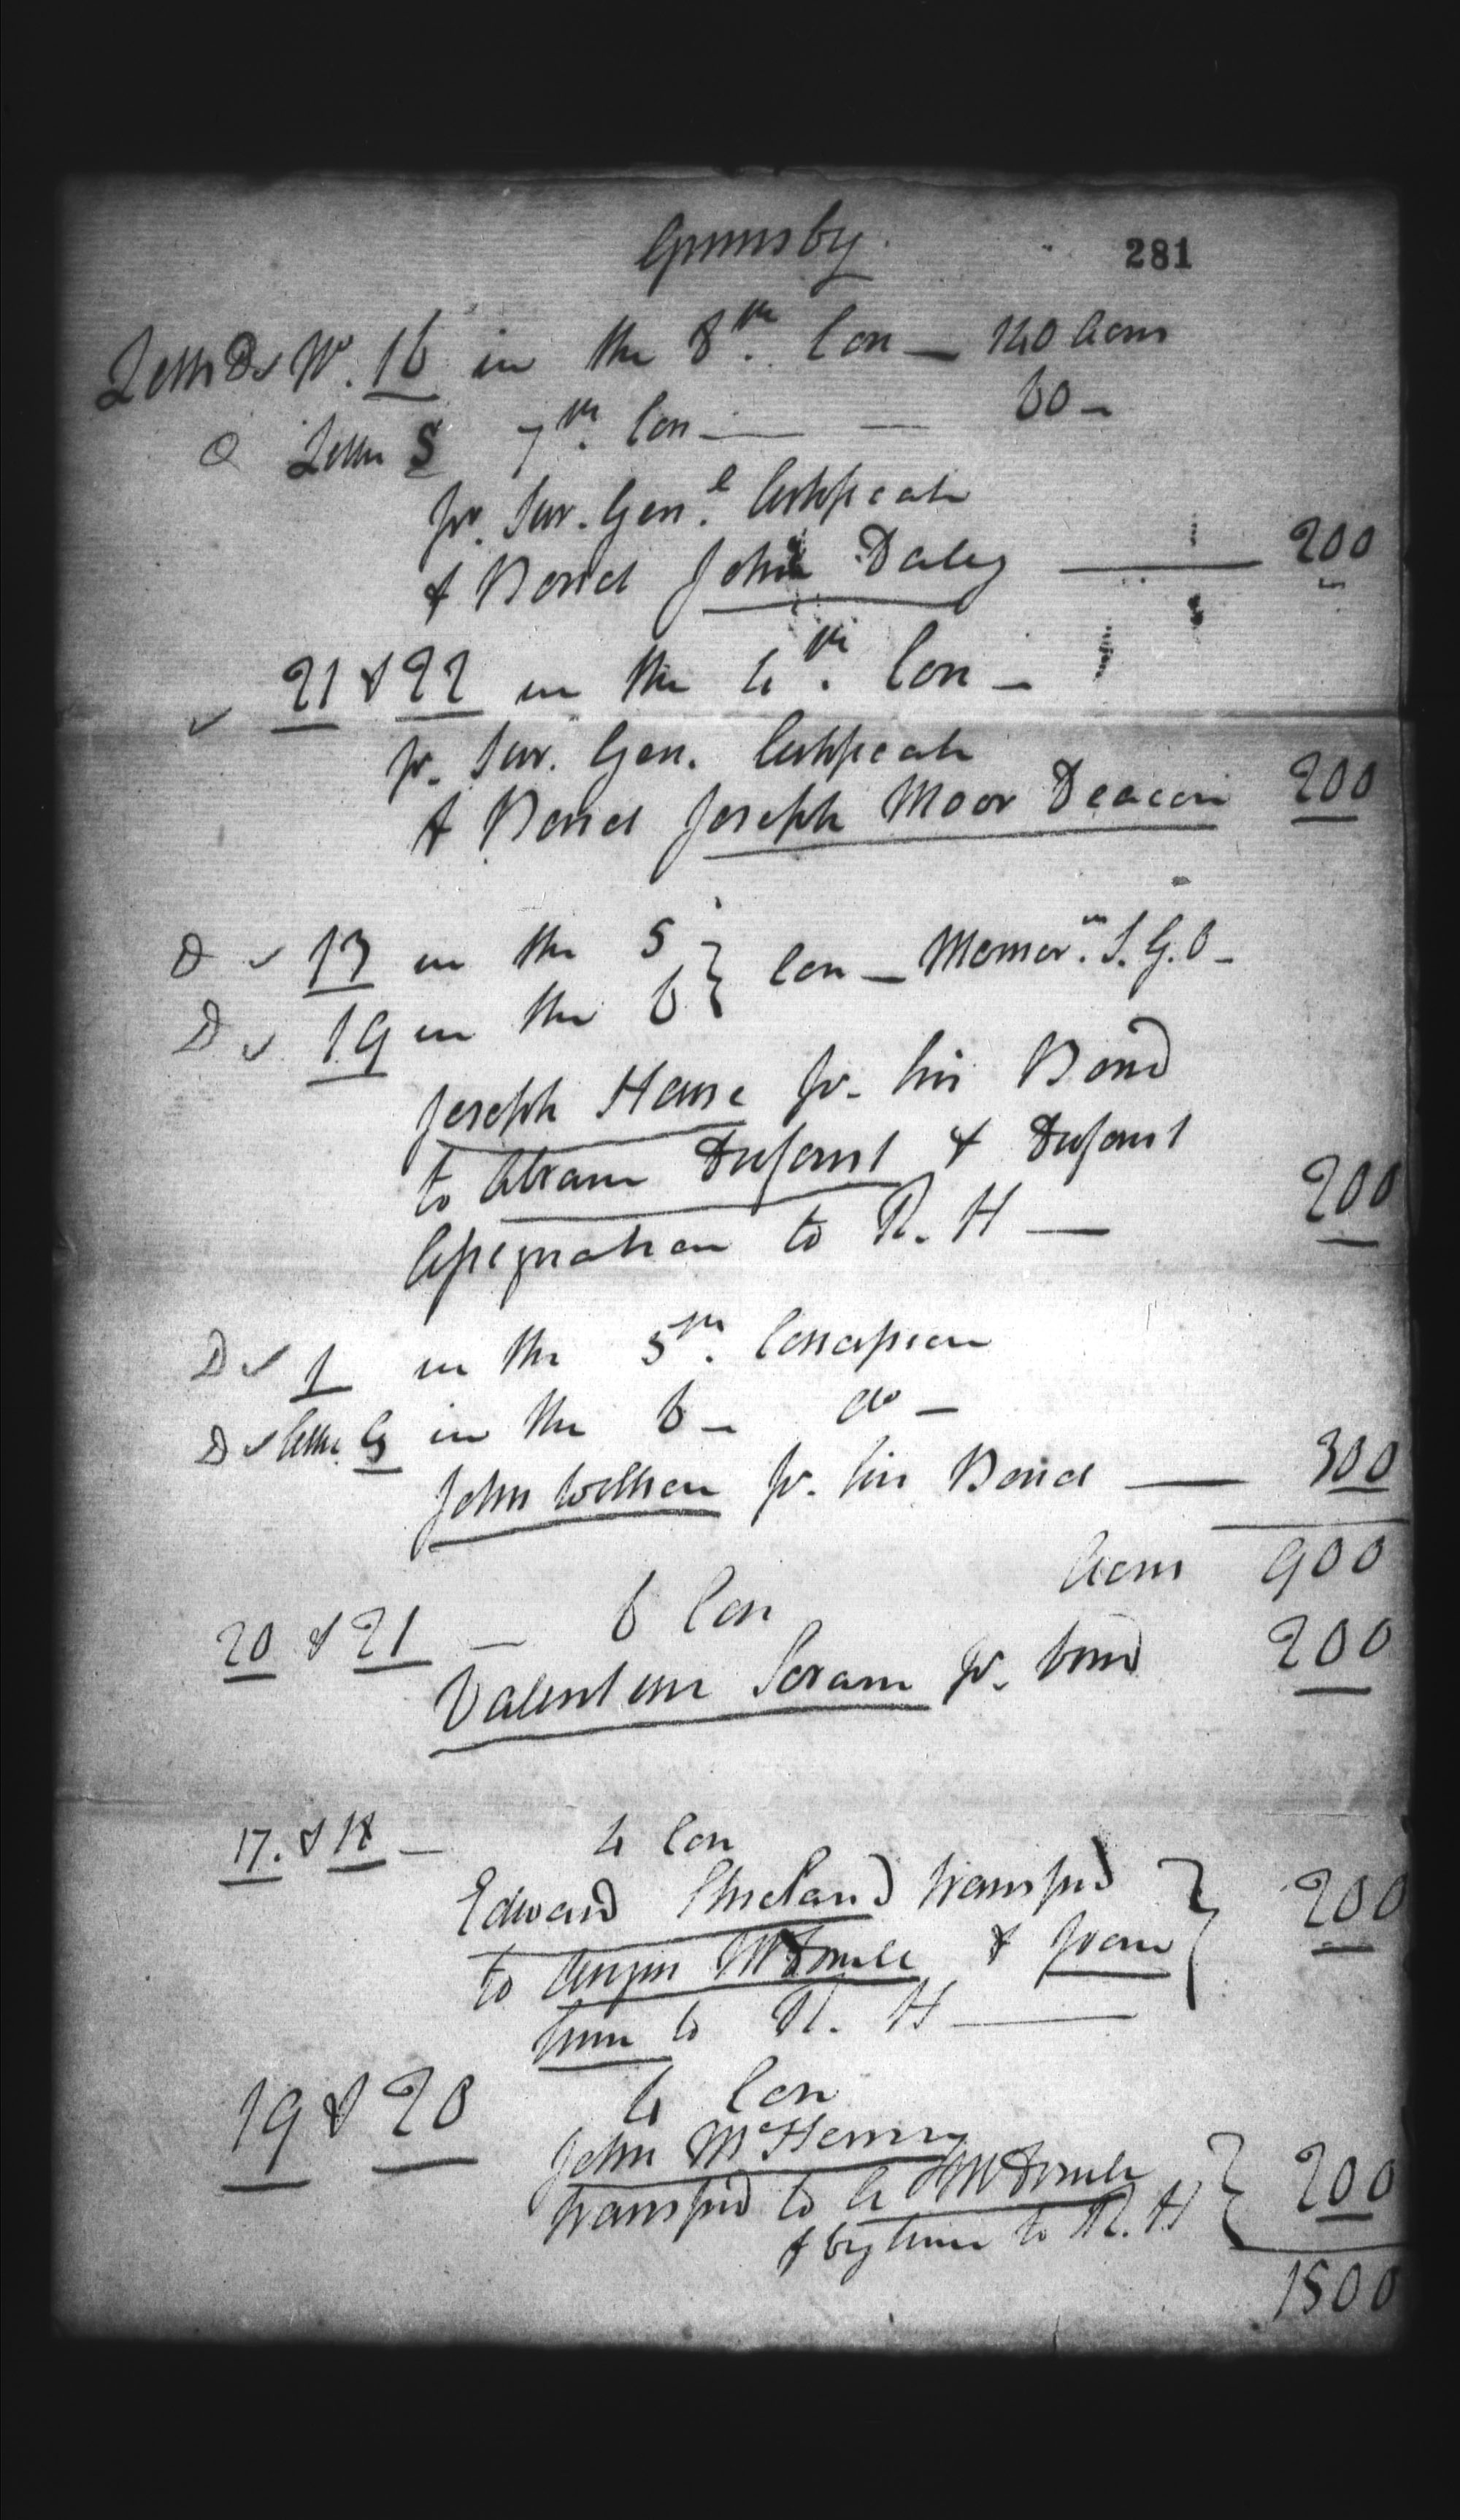 Grimsby
281
Letter D ✓ No. 16 in the 8th. Con — 140 Acres
Letter S 7th. Con — — 60 —
pr. Sur. Gen.l Certificate
& Bond John Daley — 200
✓ 21 & 22 in the 4th. Con —
pr. Sur. Gen. Certificate
& Bond Joseph Moor Deacon 200
D ✓ 13 in the 5 } Con — Memorm. S.G.O —
D ✓ 19 in the 6
Joseph House pr. his Bond
to Abram Dufont & Dufont
Assignation to R. H — 200
D ✓ 1 in the 5th. Concession
D ✓ letter G in the 6 — do —
John Wilson pr. his Bond — 300
Acres 900
20 & 21 — 6 Con
Valentine Scram pr. bond 200
17. & 18 — 4 Con
Edward transfd
to Angus & from } 200
him to R. H —
19 & 20 4 Con
John McHenry
transfd to A } 200
& by him to R. H
1500